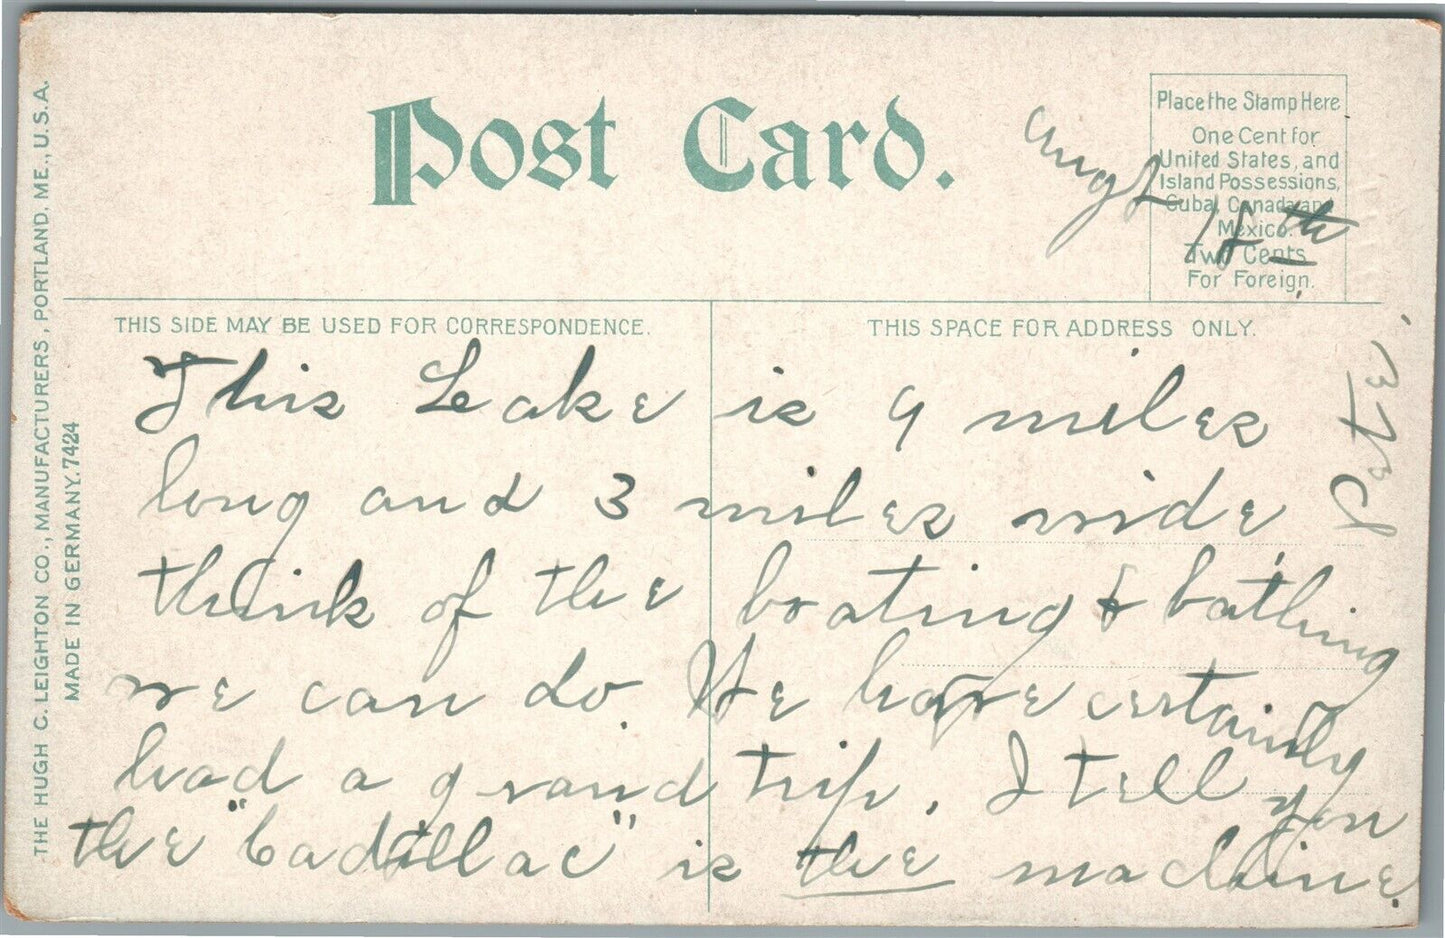 Post Card.
Place the Stamp Here
One Cent for
United States, and
Island Possessions,
Cuba, Canada and
Mexico.
Two Cents
For Foreign.
Augt 18th
THE HUGH C. LEIGHTON CO., MANUFACTURERS, PORTLAND, ME., U.S.A.
MADE IN GERMANY. 7424
THIS SIDE MAY BE USED FOR CORRESPONDENCE.
THIS SPACE FOR ADDRESS ONLY.
This Lake is 9 miles
long and 3 miles wide
think of the boating & bathing
we can do. We have certainly
had a grand trip. I tell you
the "Cadillac" is the machine.